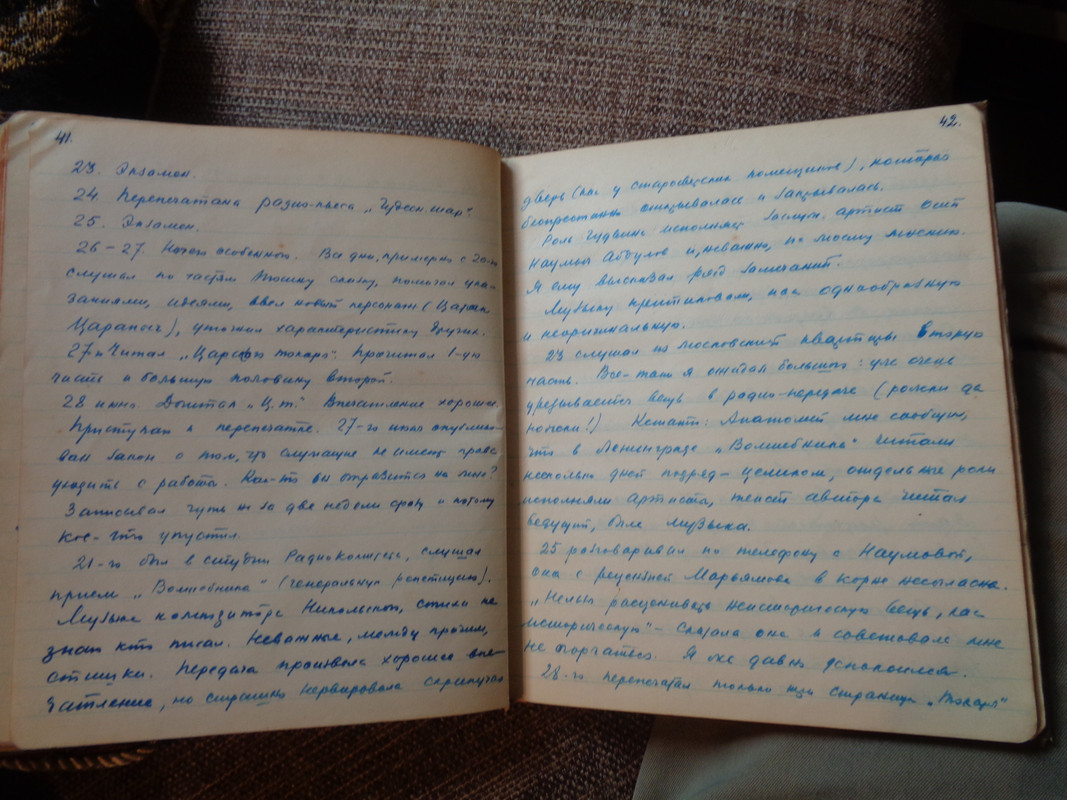 41.
23. Экзамен.
24. Перепечатана радио-пьеса „Чудесн. шар".
25. Экзамен.
26–27. Ничего особенного. Все дни, примерно с
слушал по частям сказку, помогал ука-
заниями, идеями, ввел новый персонаж (
Царапыч), уточнял характеристику других.
27-го Читал „Царский токарь". Прочитал 1-ую
часть и большую половину второй.
28 июня Дочитал „Ц. т." Впечатление хорошее.
Приступил к перепечатке. 27-го июня опублико-
ван закон о том, что служащие не имеют права
уходить с работы. Как-то он отразится на мне?
Записывал чуть ли за две недели сразу и потому
кое-что упустил.
21-го был в студии Радиокомитета, слушал
прием „Волшебника" (генеральную репетицию).
Музыка композитора Никольского, стихи не
знаю кто писал. Неважные, между прочим,
стишки. Передача произвела хорошее впе-
чатление, но страшно нервировала скрипучая
42.
дверь (как у старосветских помещиков), которая
беспрестанно открывалась и закрывалась.
Роль Гудвина исполнял заслуж. артист осет
Наумыч Абдулов и, неважно, по моему мнению.
Я ему высказал ряд замечаний.
Музыку критиковали, как однообразную
и неоригинальную.
23 слушал на московской квартире вторую
часть. Все-таки я ожидал большего: уж очень
урезывается вещь в радио-передаче (рожки да
ножки!) Кстати: Анатолий мне сообщил,
что в Ленинграде „Волшебника" читали
несколько дней подряд – целиком, отдельные роли
исполняли артисты, текст автора читал
ведущий, была музыка.
25 разговаривал по телефону с Наумовой,
она с рецензией Марьямова в корне несогласна.
„Нельзя расценивать неисторическую вещь, как
историческую" – сказала она и советовала мне
не огорчаться. Я уже давно успокоился.
28-го перепечатал только три страницы „Токаря"